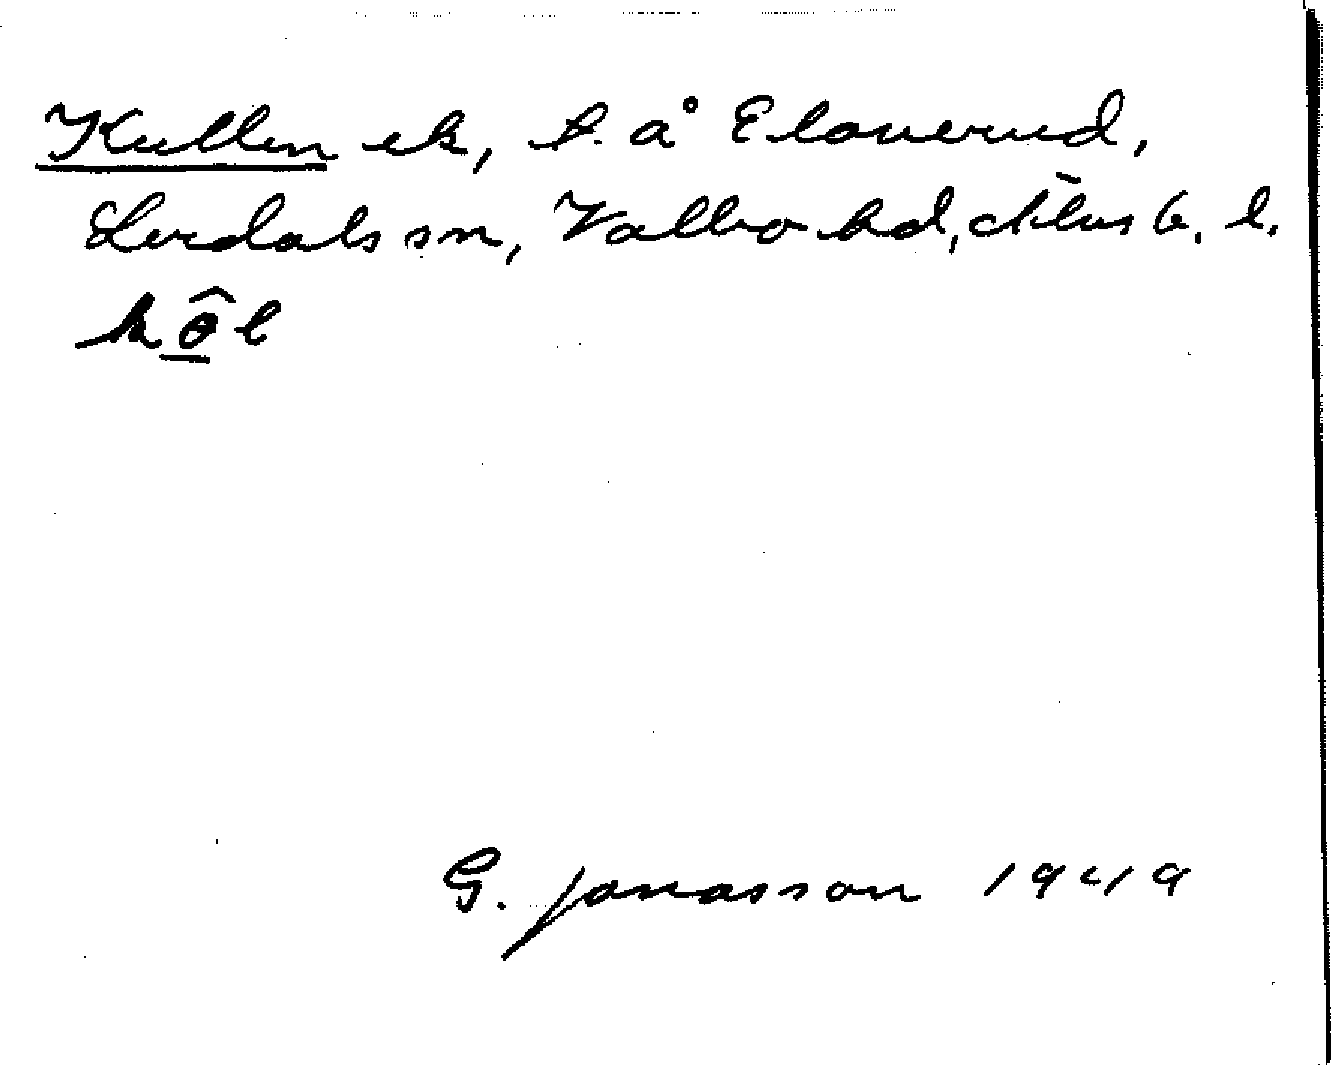 Kullen ek, t. å Elaverud,
Lerdals sn, Valbo hd, Älvsb. l.
kɵ̂l
G. Jonasson 1949